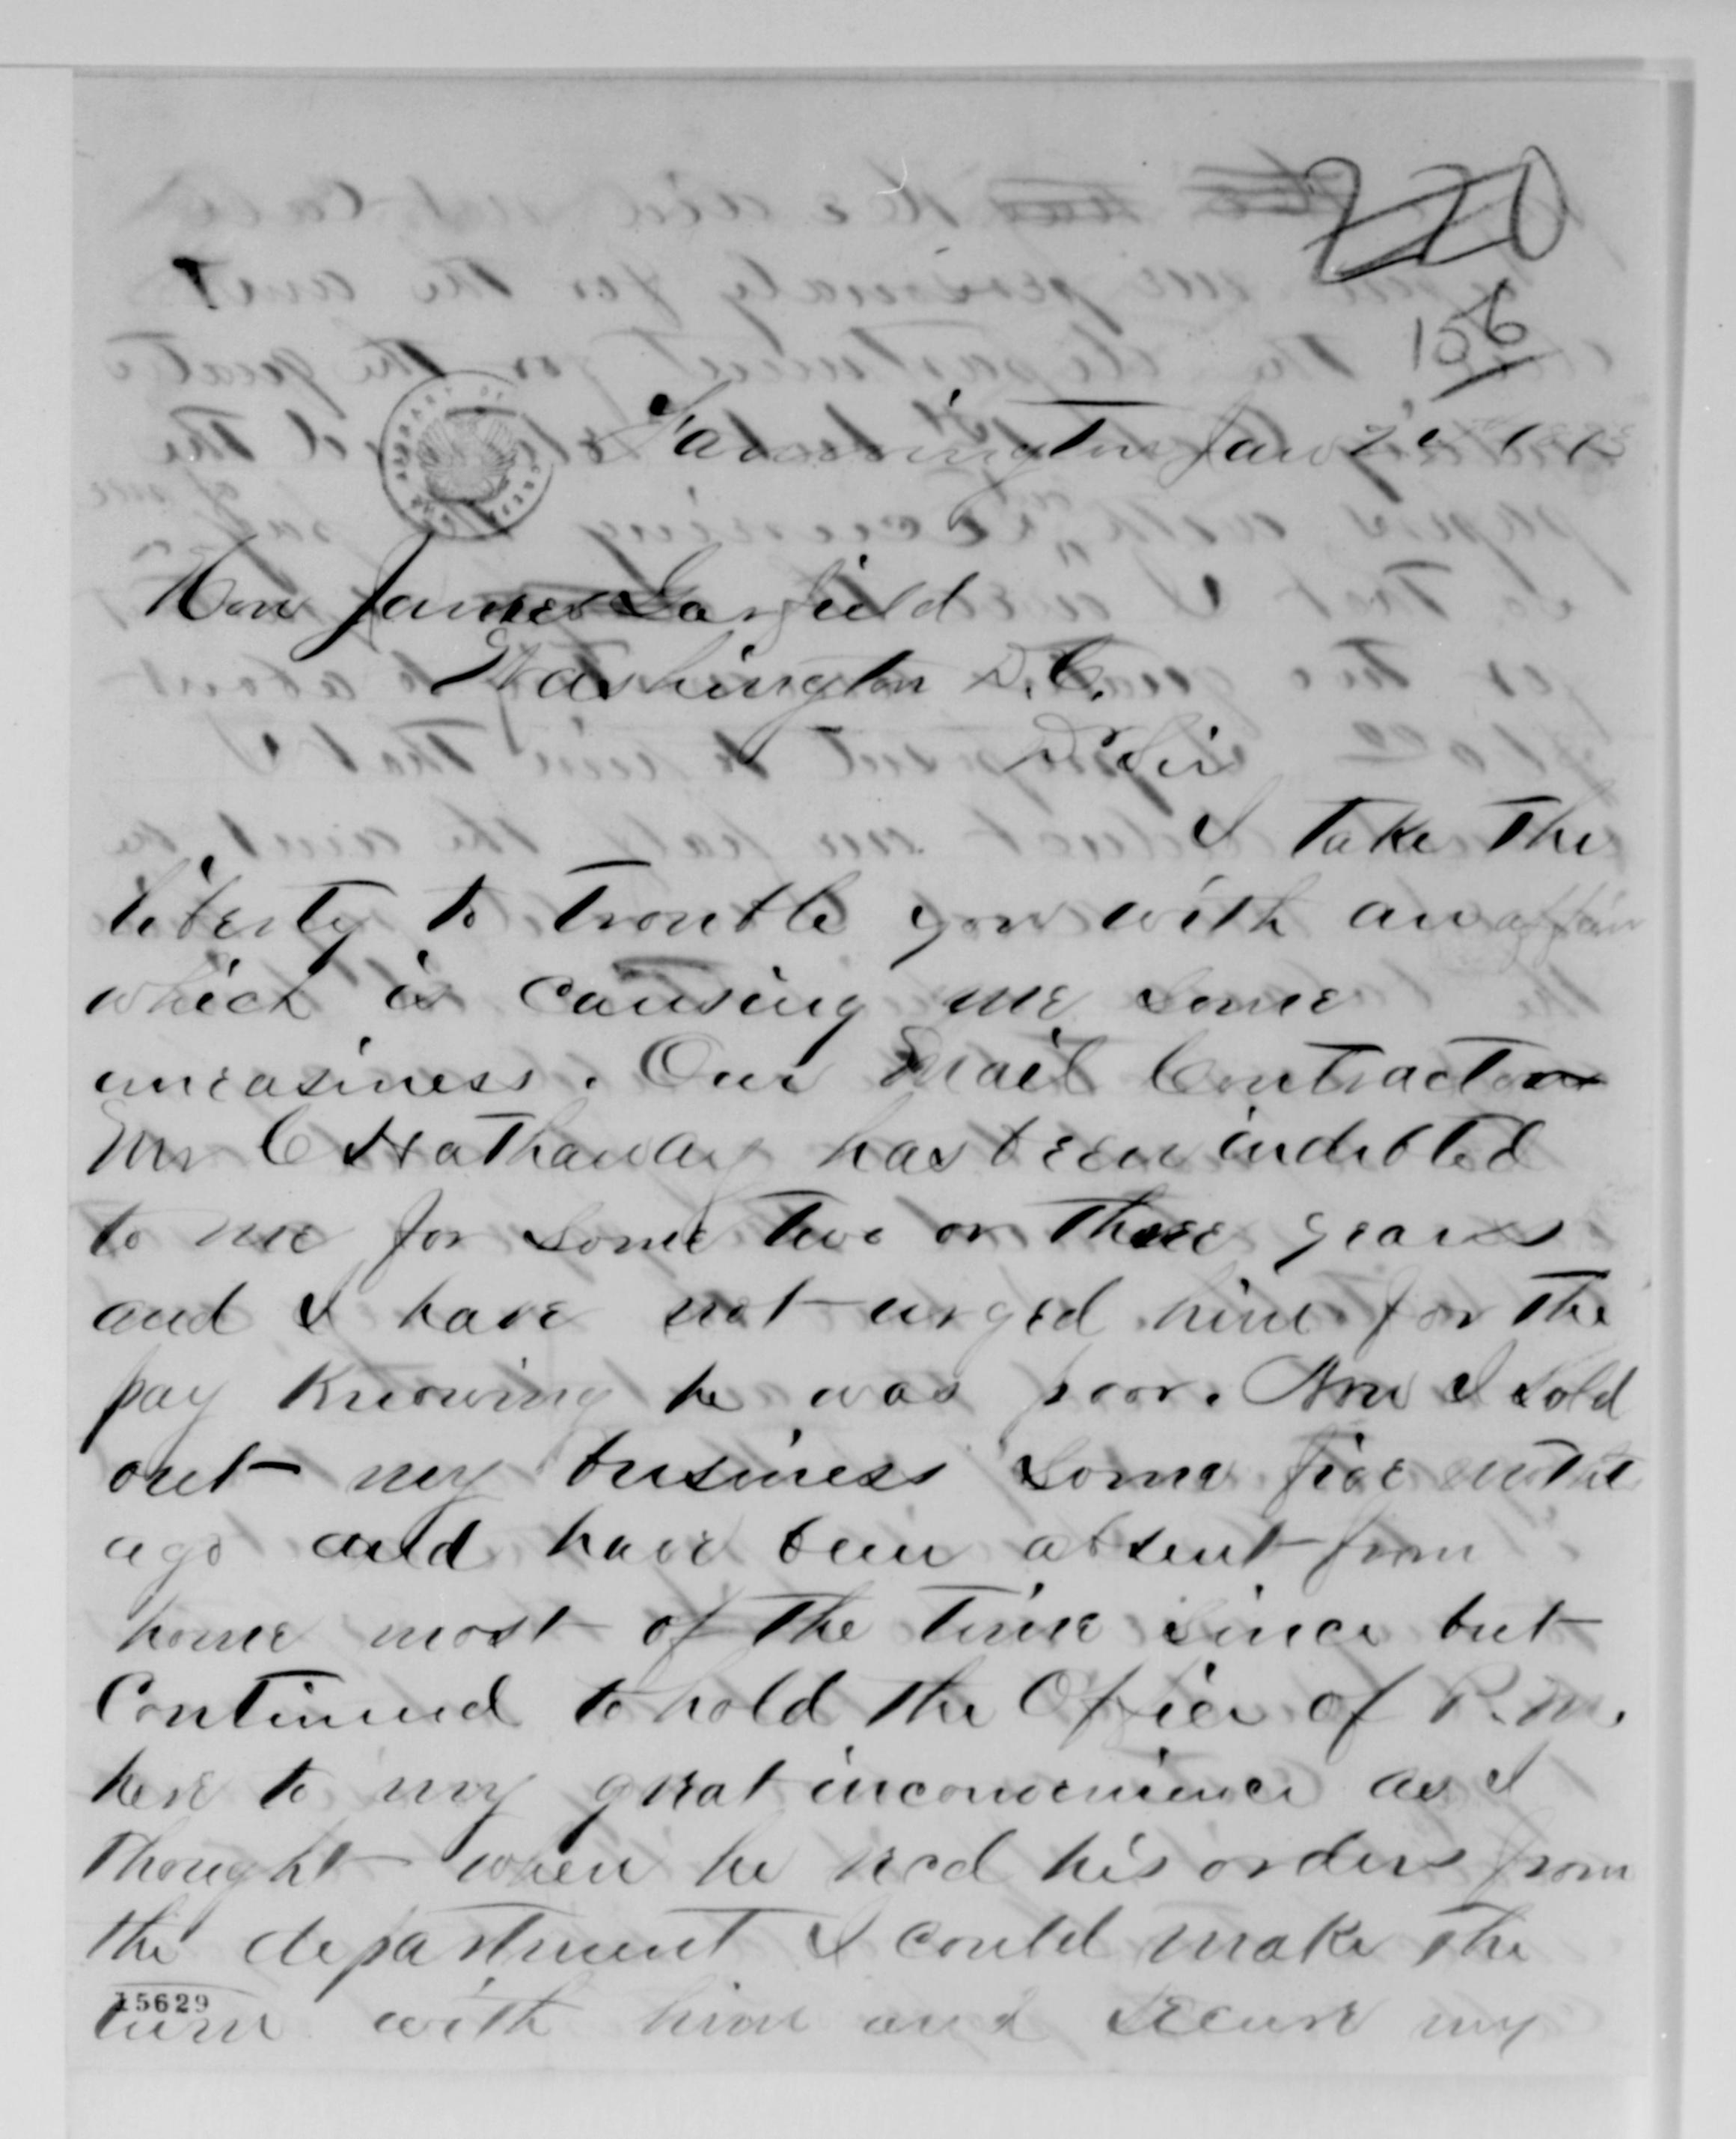 220
156
Farmington Jan
Hon James Garfield
Washington D.C.
Dr Sir
I take the
liberty to trouble you with an affair
which is causing me some
uneasiness. Our Mail Contractor
Mr C Hathaway has been indebted
to me for some two or three years
and I have not urged him for the
pay knowing he was poor. Now I sold
out my business some five
ago and have been absent from
home most of the time since but
Continued to hold the Office of P.M.
here to my great inconvenience as I
thought when he recd his orders from
the department I could make the
turn with him and secure my
15629